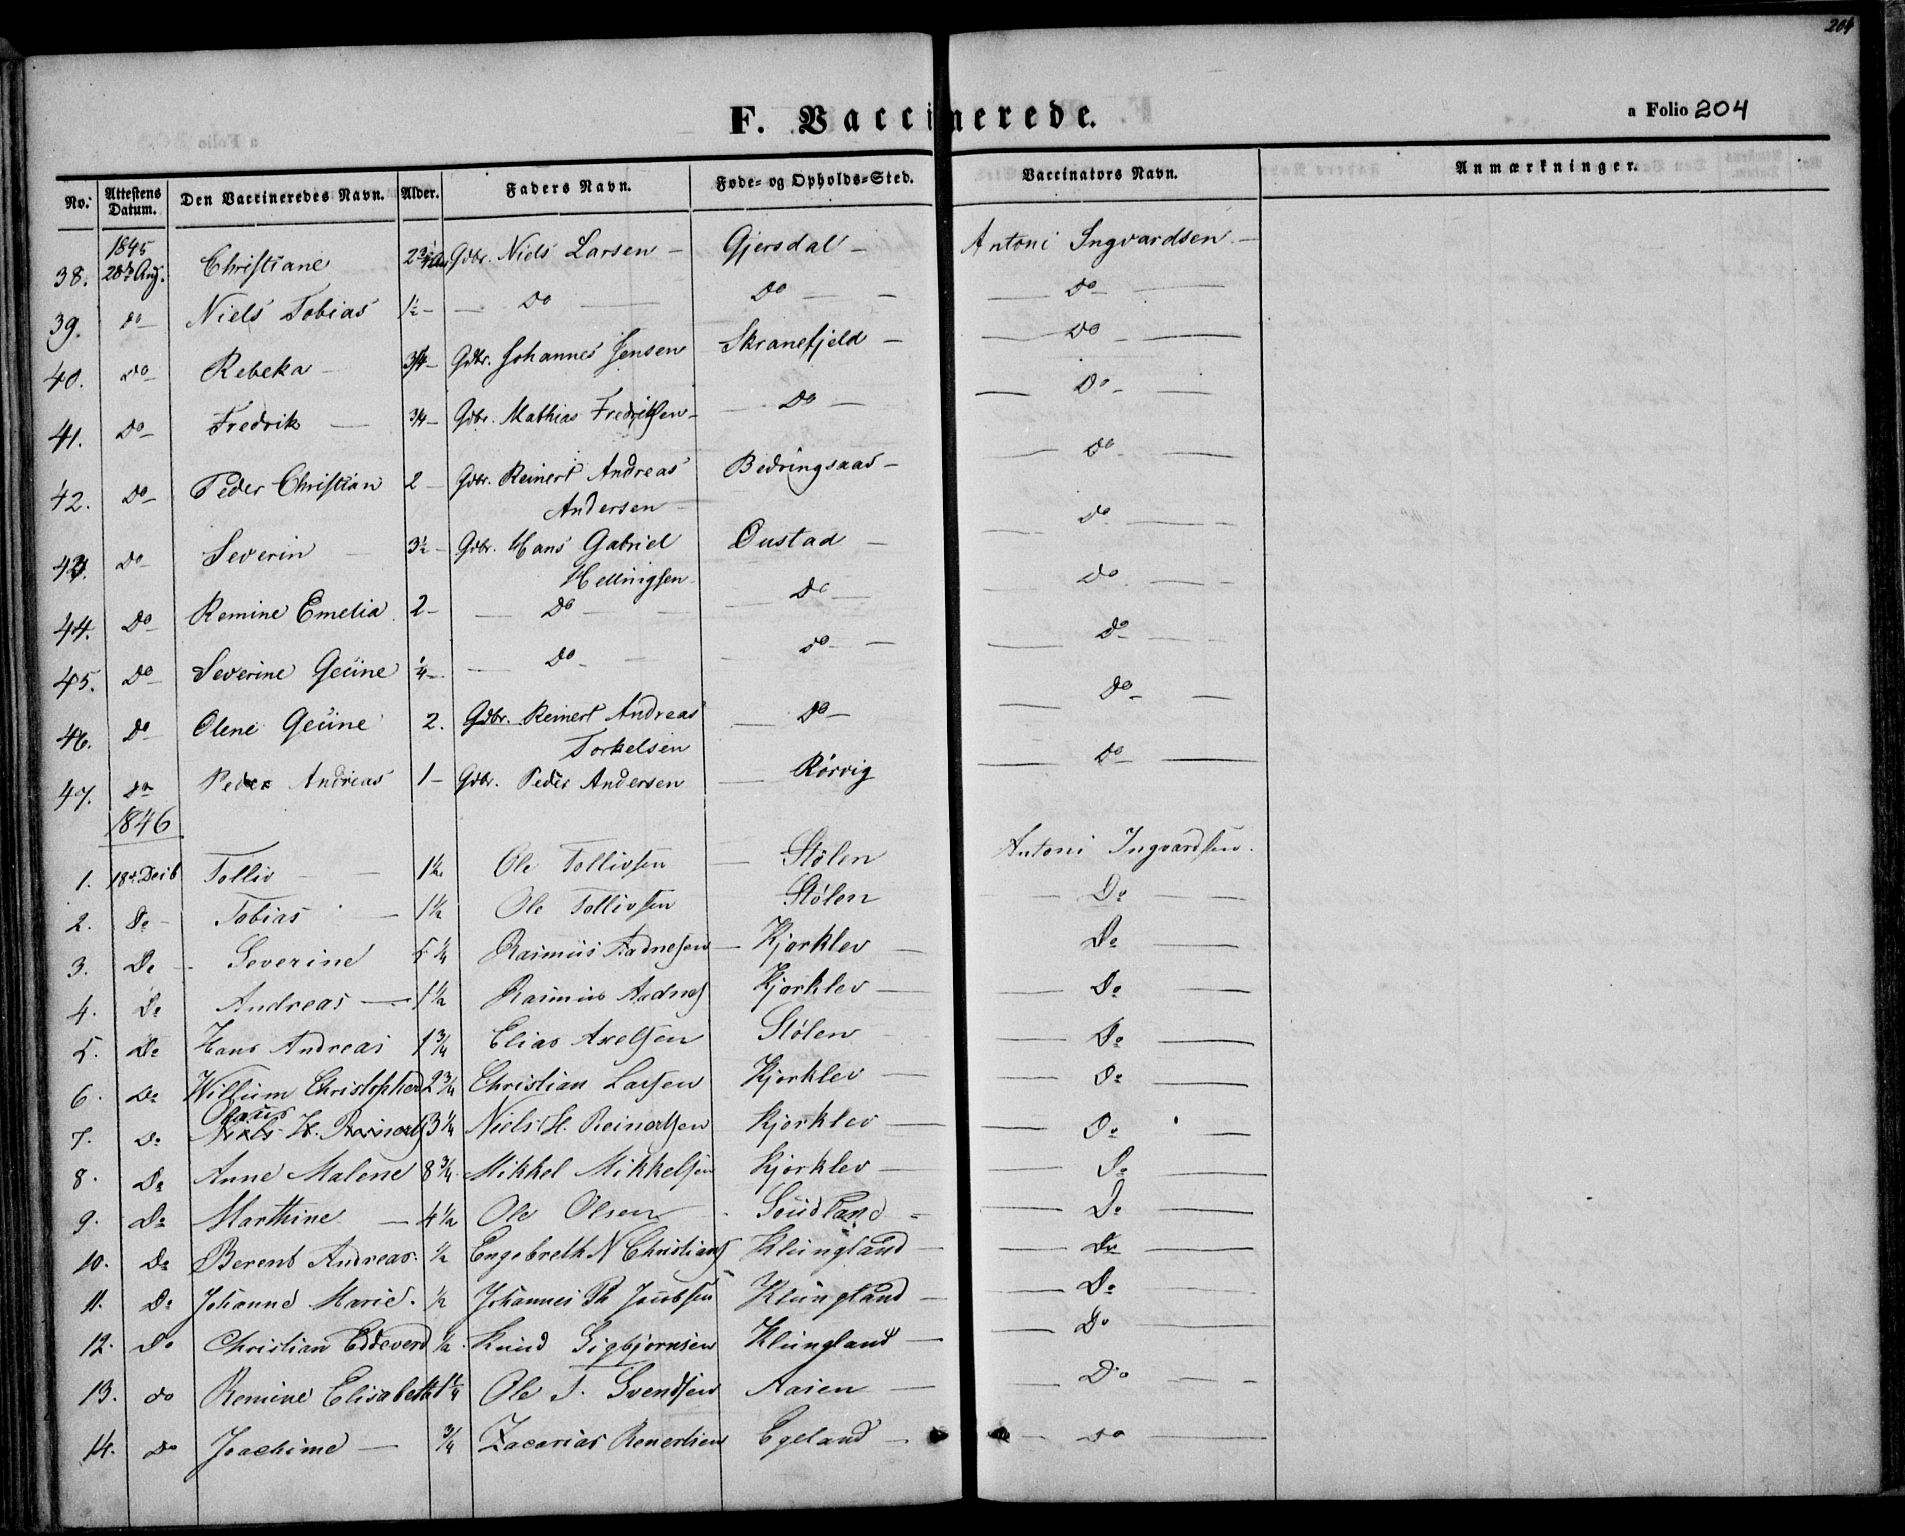 204
F. Vaccinerede.
a Folio 204
No. Attestens Datum. Den Vaccineredes Navn. Alder. Faders Navn. Føde- og Opholds-Sted. Vaccinators Navn. Anmærkninger.
1845
38. 28de Aug. Christiane 2 3/4 Aar Gdbr. Niels Larsen – Gjersdal – Antoni Ingvardsen –
39. do – Niels Tobias 1½ – – Do – Do – – Do –
40. Do – Rebeka – 3/4 – Gdbr. Johannes Jensen Skranefjeld – – Do –
41. Do – Fredrik – 3/4 – Gdbr. Mathias Fredriksen – – Do – – Do –
42. Do – Peder Christian 2 – Gdbr. Reinert Andreas Bedringsaas – – Do –
Andersen –
43. Do – Severin – 3½ – Gdbr. Hans Gabriel Oustad – – Do –
Hellingsen
44. Do – Remine Emelia. 2 – – Do – – Do – – Do –
45. Do – Severine Geüne ¼ – – Do – – Do – – Do –
46. Do – Olene Geüne 2. Gdbr. Reinert Andreas – Do – – Do –
Torkelsen
47. Do Peder Andreas 1 – Gdbr. Peder Andersen – Rörvig – Do –
1846
1. 18de Decb Tolliv – 1½ Ole Tollivsen – Stölen Antoni Ingvardsen.
2. Do – Tobias – 1½ Ole Tollivsen Stölen – Do –
3. Do – Severine 5¼ Rasmus Aadnesen – Kjorklev – Do –
4. Do Andreas – 1½ Rasmus Aadnes Kjorklev – – Do –
5. Do Hans Andreas 1 3/4 Elias Axelsen Stölen – – Do –
6. Do Willum Christopher 2 3/4 Christian Larsen Kjorklev – – Do –
Olaus
7. Do Niels H. Reinerts 3¼ Niels H. Reinertsen Kjorklev – – Do –
8. Do Anne Malene 8 3/4 Mikkel Mikkelsen Kjorklev – – Do –
9. Do Marthine – 4½ Ole Olsen – Soüdland – – Do –
10. Do Berent Andreas. ½ Engebreth N Christians Klüngland – – Do –
11. Do Johanne Marie. ½ Johannes Th Jacobsen Klüngland – – Do –
12. Do Christian Eddeverd ½ Knud Sigbjørnsen Klüngland – – Do –
13. do Remine Elisabeth 1¼ Ole T. Svendsen Aasen – – Do –
14. Do Joachime – 3/4 Zacarias Renertsen Egeland – – Do –